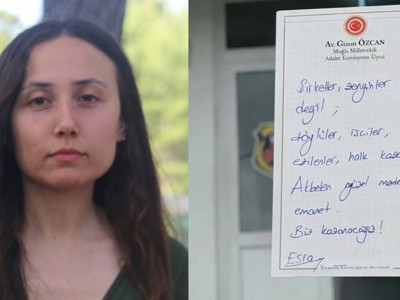 Av. Gizem ÖZCAN
Muğla Milletvekili
Adalet Komisyonu Üyesi
Şirketler, zenginler
değil ;
köylüler, işçiler,
ezilenler, halk
Akbelen güzel
emanet.
Biz kazanacağız!
Esra